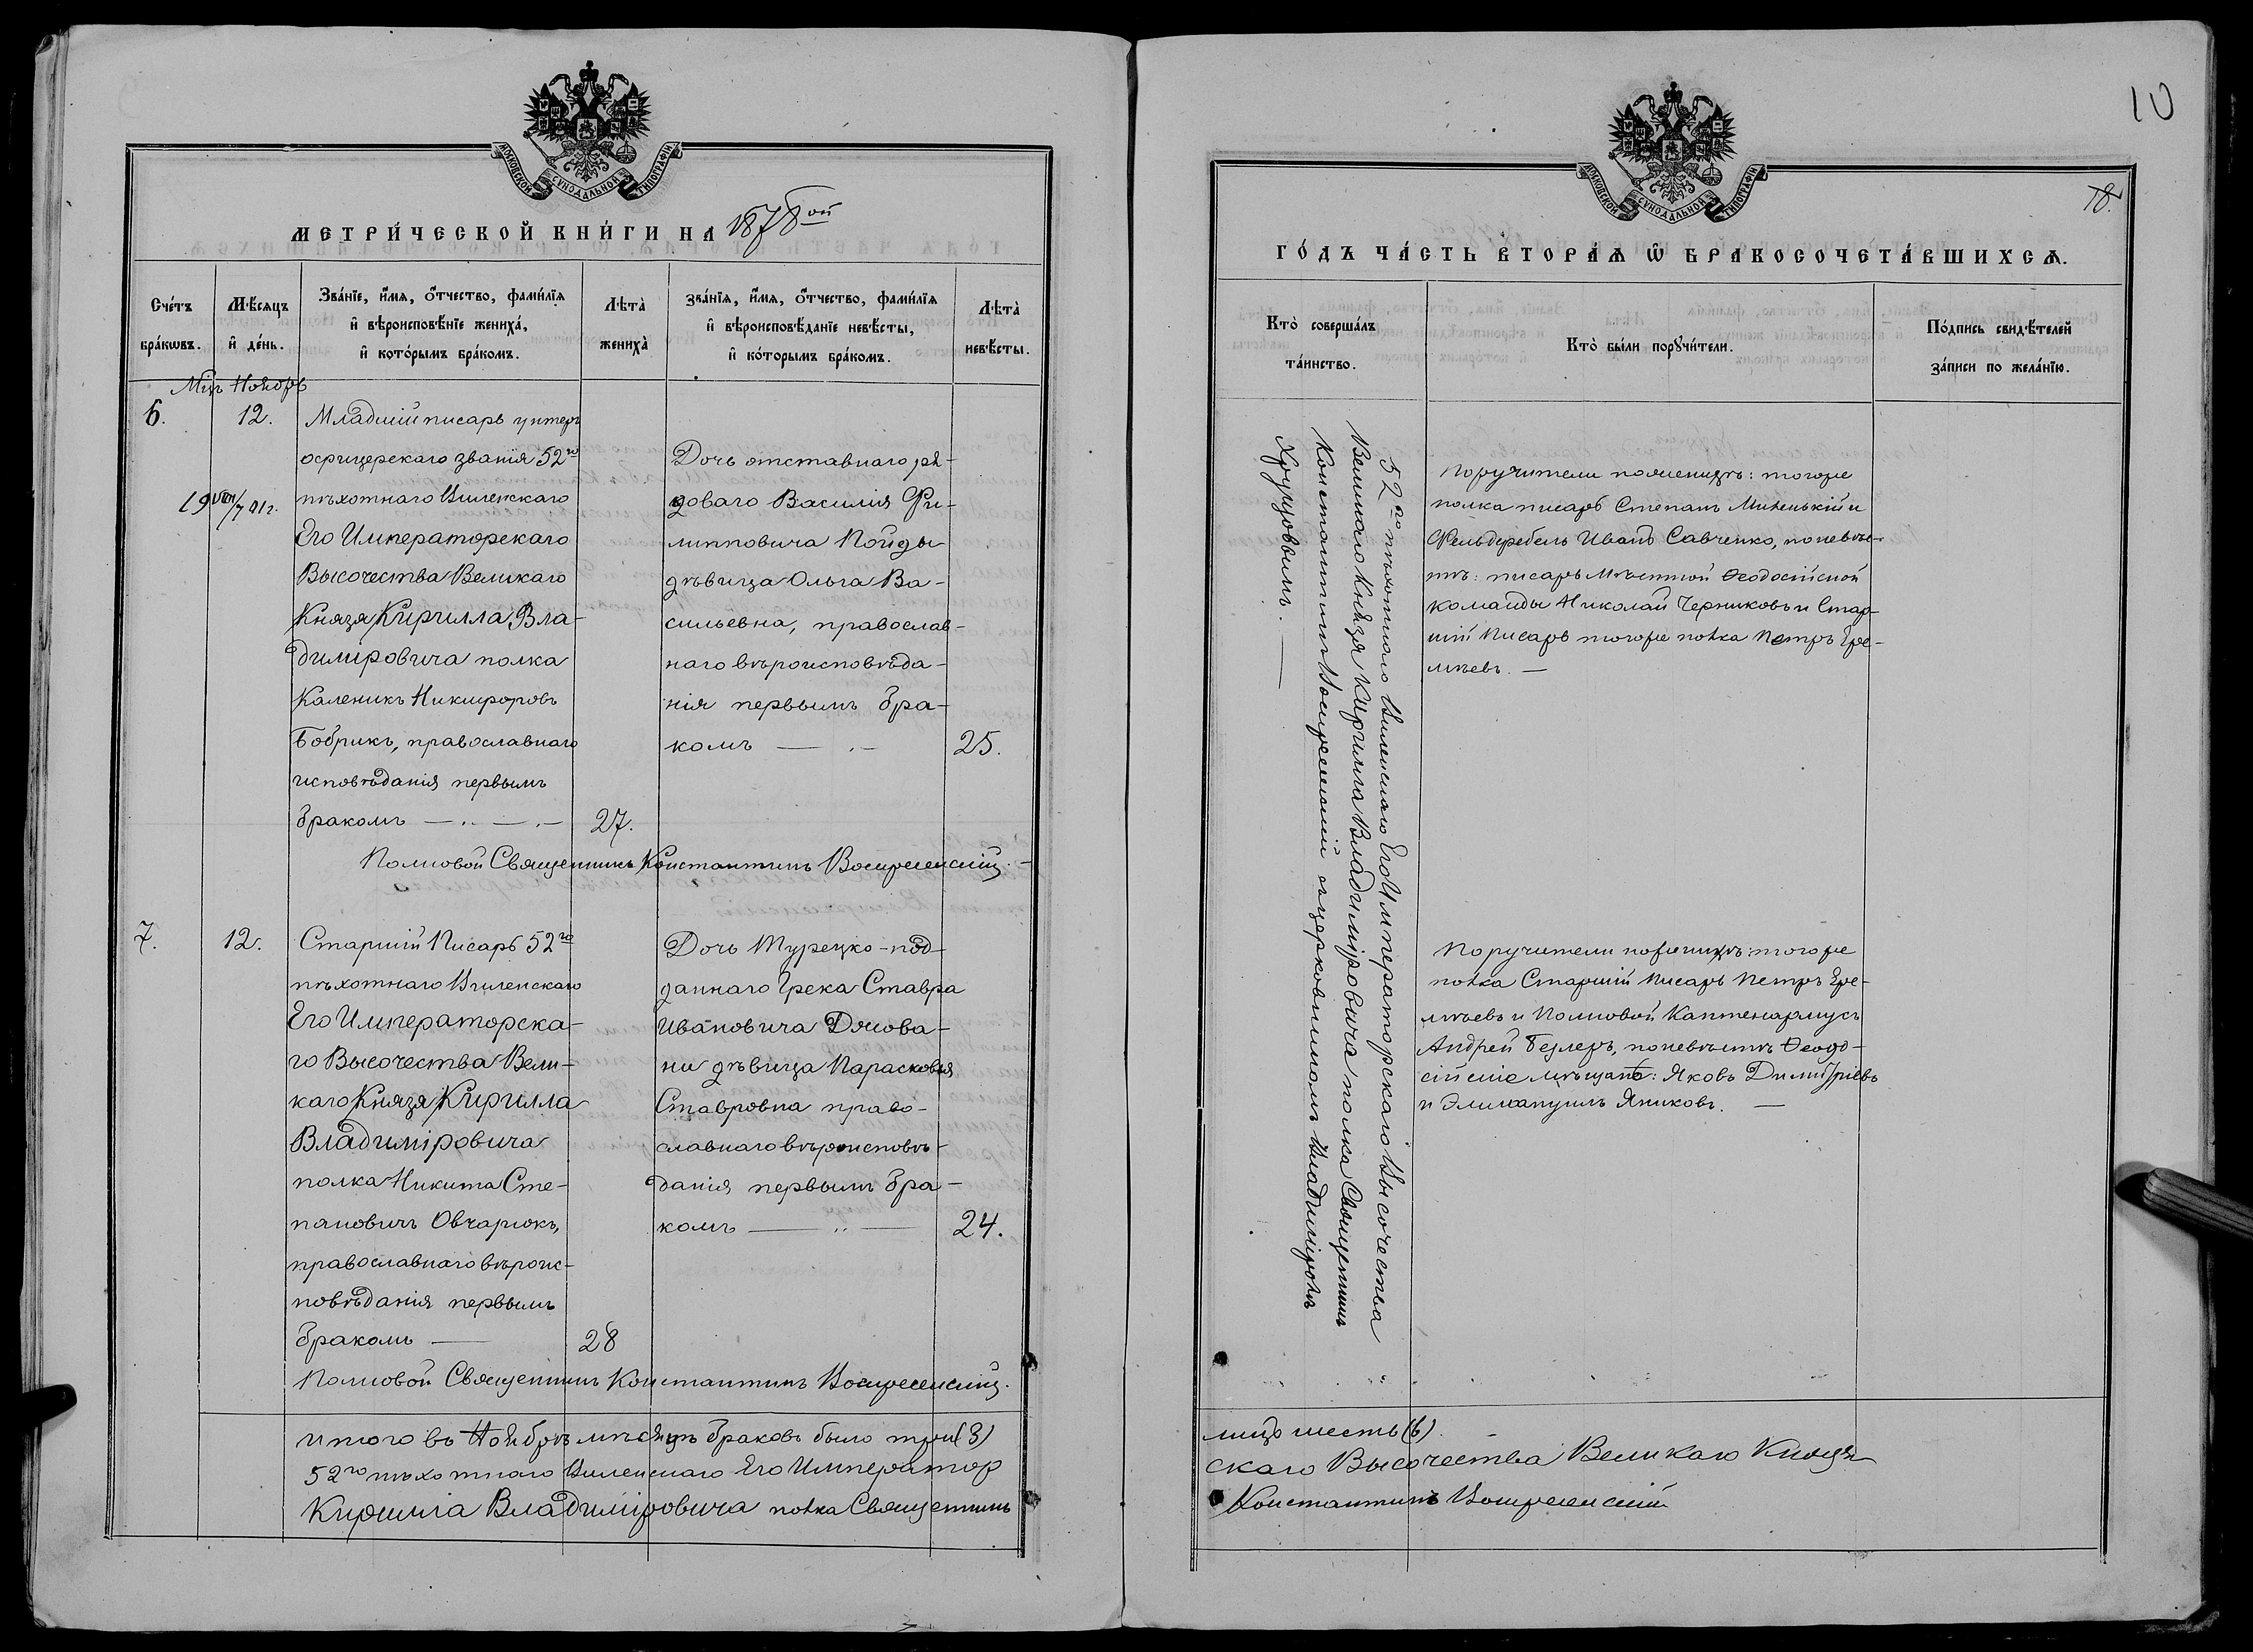 10
18.
МОСКОВСКОЙ СѴНОДАЛЬНОЙ ТИПОГРАФІИ
МЕТРИ́ЧЕСКОЙ КНИ́ГИ НА 1878ой
Сче́тъ бра́кѡвъ.
Мѣ́сяцъ и҆ де́нь.
Зва́нїе, и҆́мѧ, ѻ҆́тчество, фами́лїѧ
и҆ вѣроисповѣ́нїе жениха́,
и҆ кото́рымъ бра́комъ.
Лѣта̀ жениха̀
зва́нїѧ, и҆́мѧ, ѻ҆́тчество, фами́лїѧ
и҆ вѣроисповѣ́данїе невѣ́сты,
и҆ ко́торымъ бра́комъ.
Лѣта̀ невѣ́сты.
Мцъ Ноябрь
6.
12.
19 VIII/7 91 г.
Младшій писарь унтеръ
офицерскаго званія 52го
пѣхотнаго Виленскаго
Его Императорскаго
Высочества Великаго
Князя Кирилла Вла-
диміровича полка
Каленикъ Никифоровъ
Бобрикъ, православнаго
исповѣданія первымъ
бракомъ
27.
Дочь отставнаго ря-
доваго Василія Фи-
липповича Пойды
дѣвица Ольга Ва-
сильевна, православ-
наго вѣроисповѣда-
нія первымъ бра-
комъ
25.
Полковой Священникъ Константинъ Воскресенскій.
7.
12.
Старшій Писарь 52го
пѣхотнаго Виленскаго
Его Императорска-
го Высочества Вели-
каго Князя Кирилла
Владиміровича
полка Никита Сте-
пановичъ Овчарюкъ,
православнаго вѣроис-
повѣданія первымъ
бракомъ
28
Дочь Турецко-под-
даннаго Грека Ставра
Ивановича Дмова-
ни дѣвица Парасковья
Ставровна право-
славнаго вѣроисповѣ-
данія первымъ бра-
комъ
24.
Полковой Священникъ Константинъ Воскресенскій.
Итого въ Ноябрѣ мѣсяцѣ браковъ было три (3)
52го пѣхотнаго Виленскаго Его Император
Кирилла Владиміровича полка Священникъ
МОСКОВСКОЙ СѴНОДАЛЬНОЙ ТИПОГРАФІИ
ГО́ДЪ ЧА́СТЬ ВТОРАѦ Ѡ҆ БРАКОСОЧЕТА́ВШИХСѦ.
Кто̀ соверша́лъ та́инство.
Кто̀ бы́ли порꙋчи́тели.
По́дпись свидѣ́телей
за́писи по жела́нїю.
52го пѣхотнаго Виленскаго Его Императорскаго Высочества
Великаго Князя Кирилла Владиміровича полка Священникъ
Константинъ Воскресенскій съ церковникомъ Владиміромъ
Хрущовымъ.
Поручители по женихѣ: тогоже
полка писарь Степанъ Миненькій и
Фельдфебель Иванъ Савченко, по невѣс-
тѣ: писарь Мѣстной Ѳеодосійской
команды Николай Черниковъ и Стар-
шій Писарь тогоже полка Петръ Ере-
мѣевъ.
Поручители по женихѣ: тогоже
полка Старшій Писарь Петръ Ере-
мѣевъ и Полковой Каптенармусъ
Андрей Безлеръ, по невѣстѣ Ѳеодо-
сійскіе мѣщане: Яковъ Димитріевъ
и Эммануилъ Яниковъ.
лицъ шесть (6).
скаго Высочества Великаго Князя
Константинъ Воскресенскій